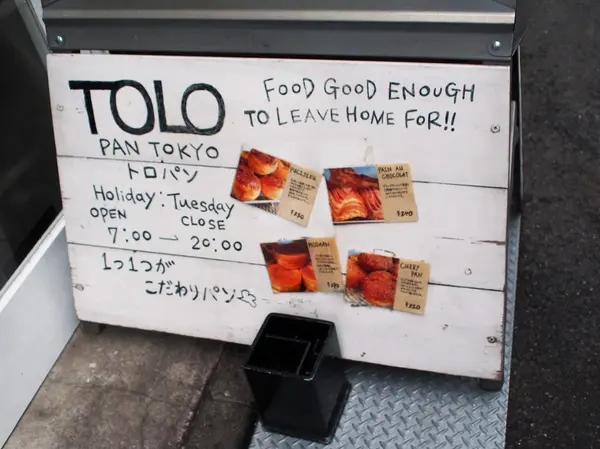 TOLO
PAN TOKYO
トロパン
Holiday: Tuesday
OPEN CLOSE
7:00 → 20:00
1つ1つが
こだわりパン
FOOD GOOD ENOUGH
TO LEAVE HOME FOR!!
PAIN AU
CHOCOLAT
CURRY
PAN